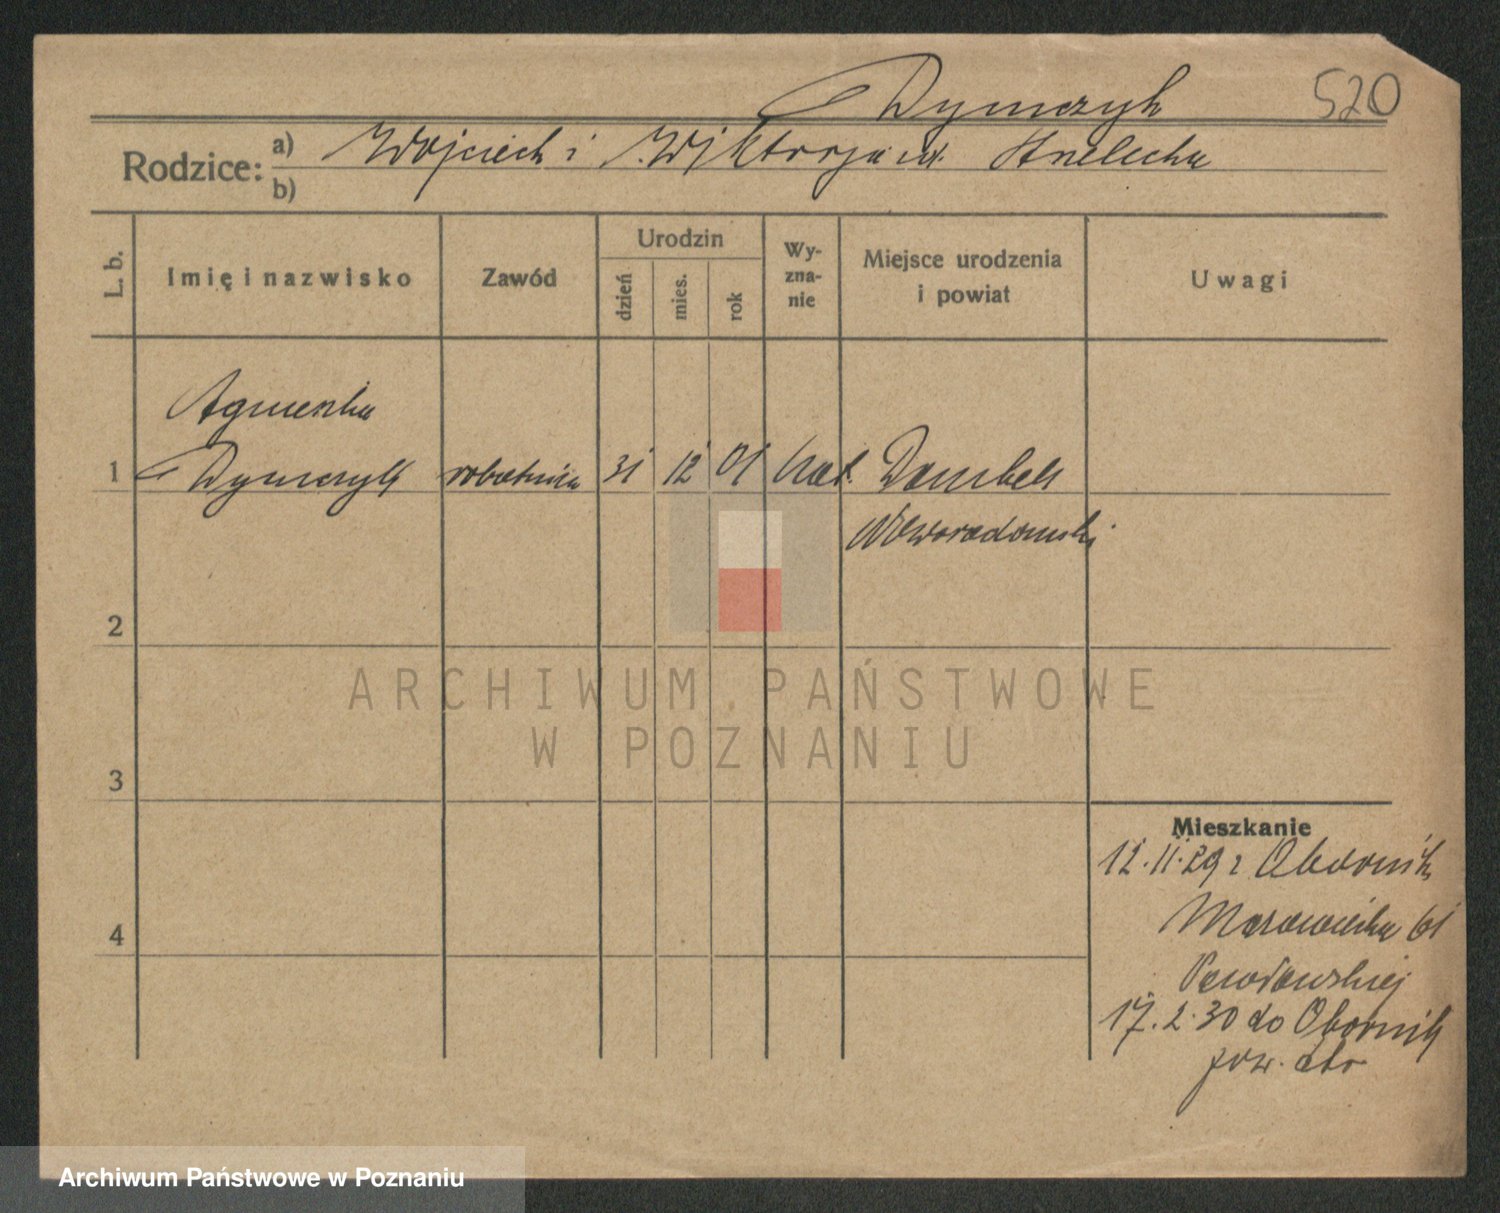 Dymczyk
520
Rodzice: a) Wojciech i Wiktorja
b)
L. b.
Imię i nazwisko
Zawód
Urodzin
dzień
mies.
rok
Wy-
zna-
nie
Miejsce urodzenia
i powiat
Uwagi
Agnieszka
1 Dymczyk robotnica 31 12 01 kat. Dambek
Noworadomski
2
3
4
Mieszkanie
12.11.29 z Obornik
Mazowiecka 61
17.2.30 do Obornik
pow. obr
ARCHIWUM PAŃSTWOWE
W POZNANIU
Archiwum Państwowe w Poznaniu